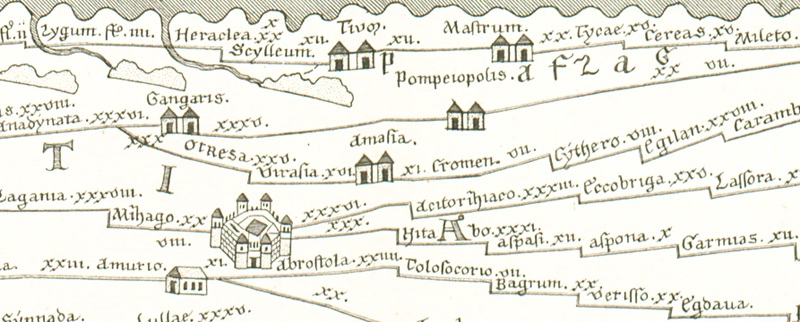 fl. ii Zygum. flō. iiii. Heraclea. xx xii. Tivoy. xii. Mastrum. xx. Tycae. xv. Cereas. xv. Mileto.
Scylleum.
P Pompeiopolis. a f 2 a G
xx vii.
is. xxviii. Gangaris.
Anadynata. xxxvi. xxxv.
xxx Otresa. xxv. Amasia.
T I Virasia. xvi. xi. Cromen. vii. Cythero. viii. Egilan. xxviii. Caramb
Lagania. xxxviii. xxxvi. acitorihiaco. xxxiii. Eccobriga. xxv. Lassora. x
Mihago. xx xxx. Bita A bo. xxxi.
viii. aspasi. xii. aspona. x Garmias. xii.
a. xxiii. Amurio. xi. abrostola. xxiiii Tolosocorio. vii.
Bagrum. xx. Verisso. xx. Egdava.
xx.
Synnada. Lullae. xxxv.